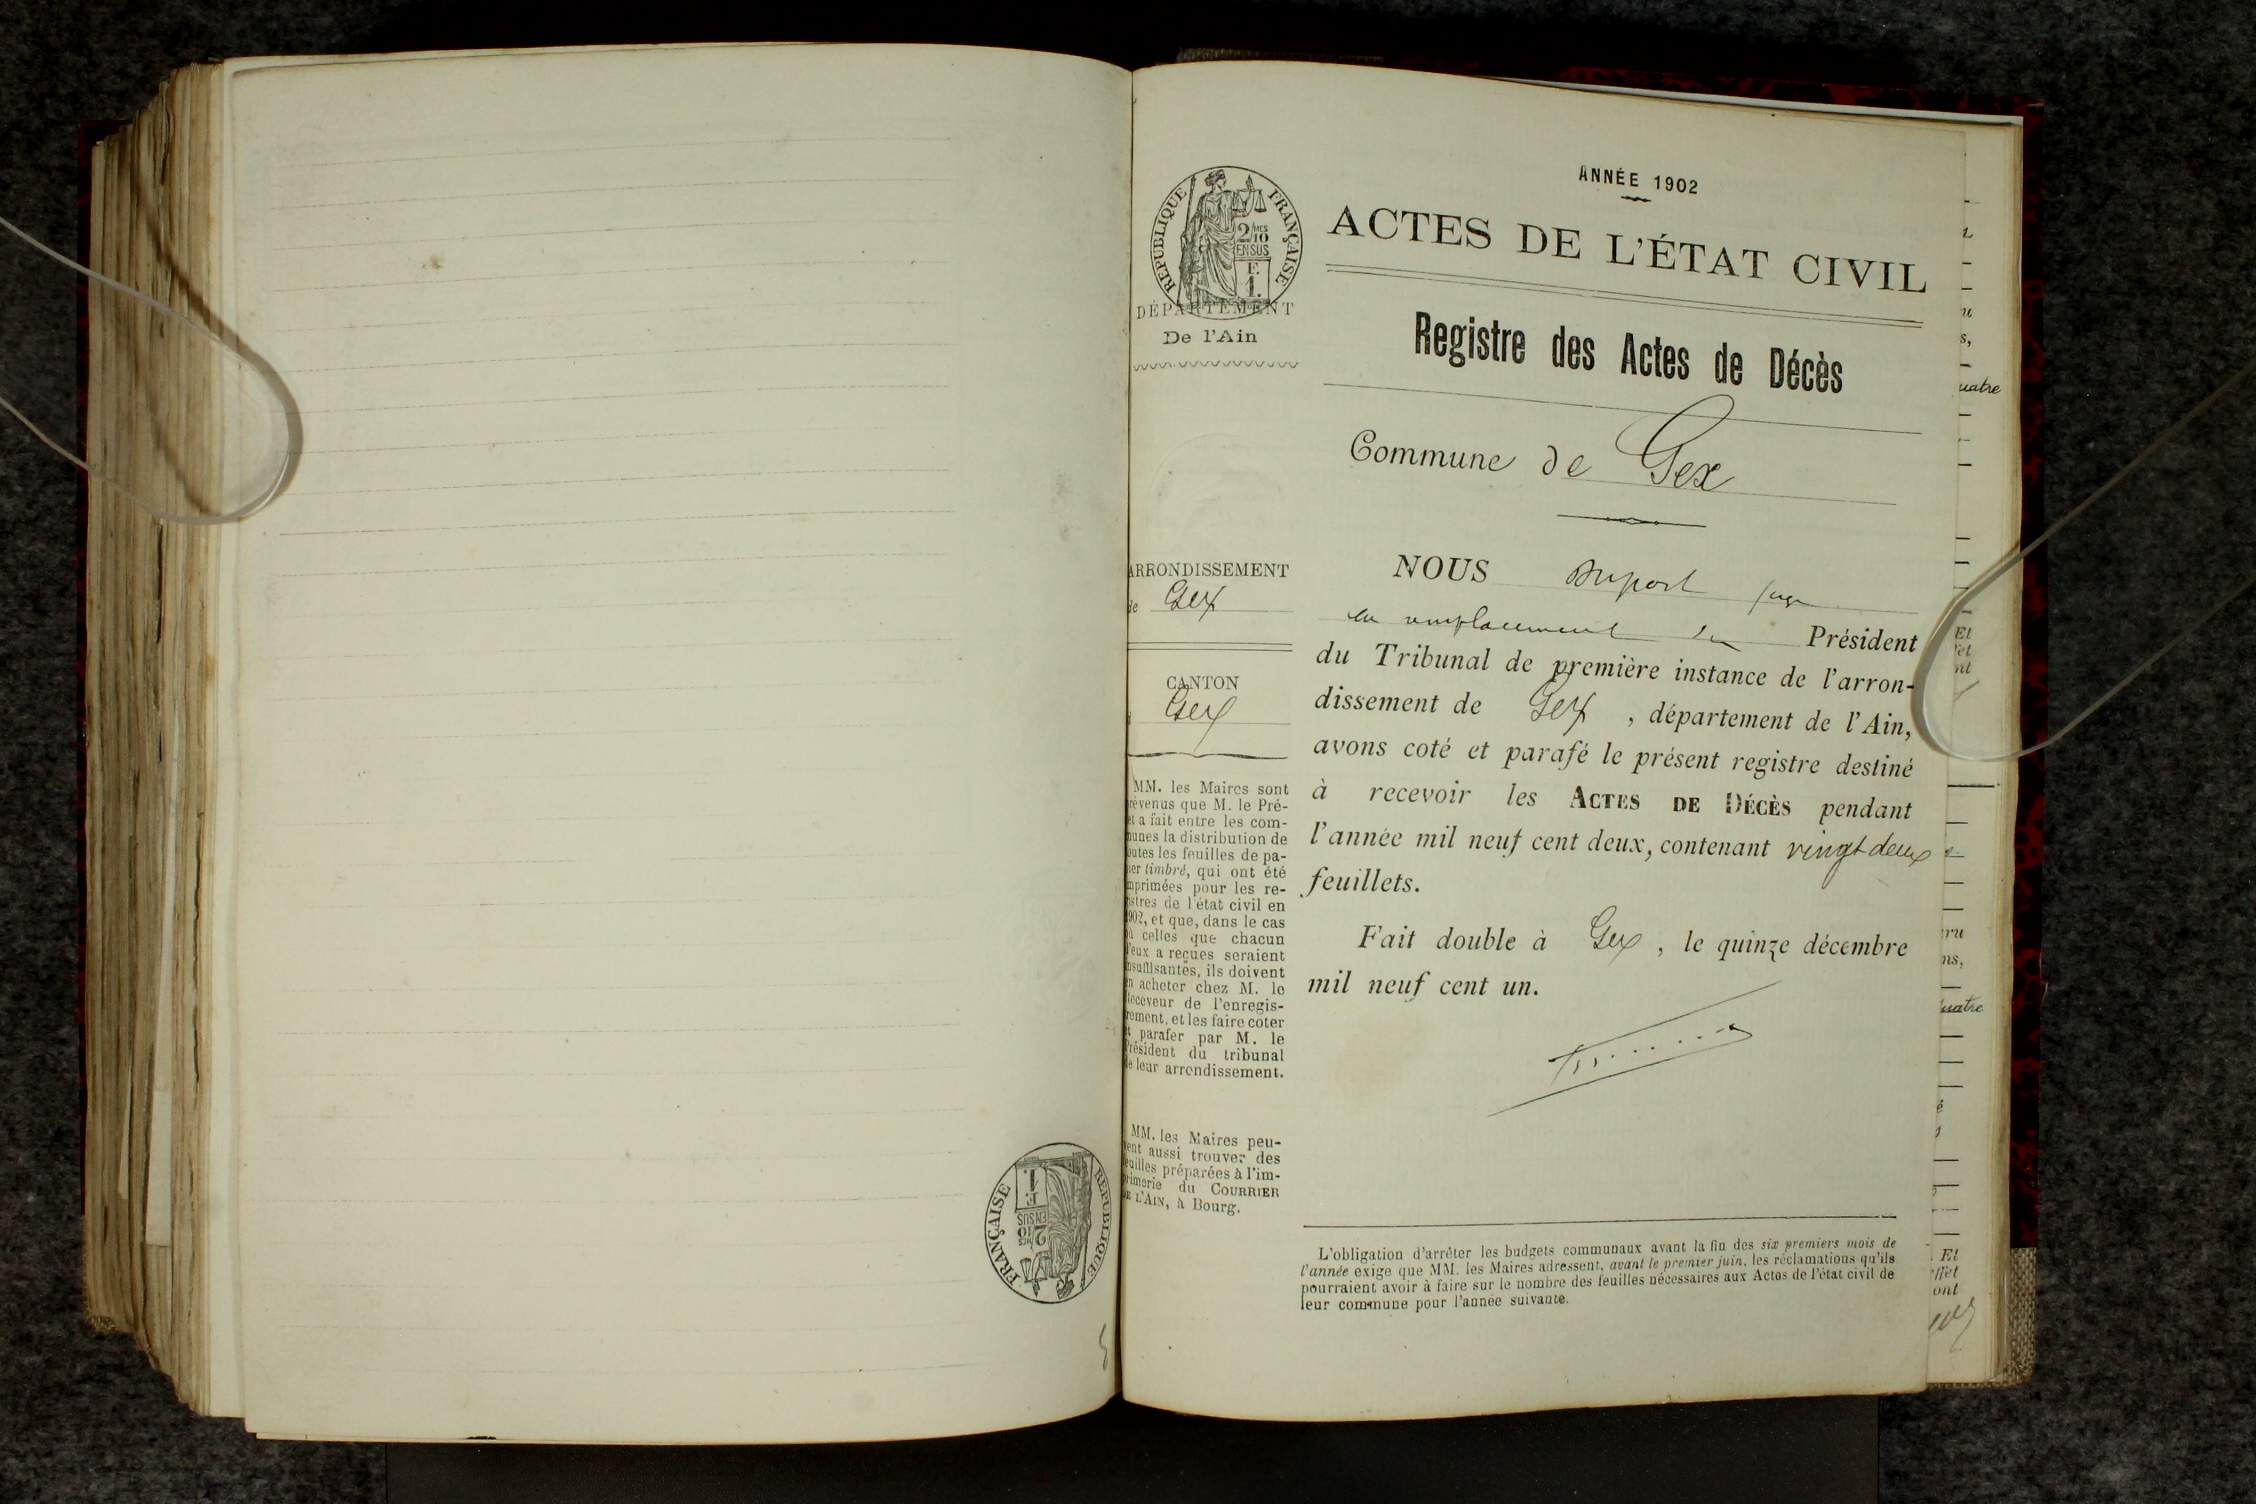 ANNÉE 1902
ACTES DE L'ÉTAT CIVIL
RÉPUBLIQUE FRANÇAISE
2/10 MES
EN SUS
F.
1.
DÉPARTEMENT
De l'Ain
Registre des Actes de Décès
Commune de Gex
ARRONDISSEMENT
de Gex
CANTON
Gex
MM. les Maires sont
révenus que M. le Pré-
et a fait entre les com-
munes la distribution de
outes les feuilles de pa-
ier timbré, qui ont été
mprimées pour les re-
istres de l'état civil en
1902, et que, dans le cas
où celles que chacun
d'eux a reçues seraient
nsuffisantes, ils doivent
en acheter chez M. le
Receveur de l'enregis-
rement, et les faire coter
et parafer par M. le
Président du tribunal
de leur arrondissement.
MM. les Maires peu-
vent aussi trouver des
feuilles préparées à l'im-
primerie du COURRIER
DE L'AIN, à Bourg.
NOUS Duport juge
en remplacement du Président
du Tribunal de première instance de l'arron-
dissement de Gex, département de l'Ain,
avons coté et parafé le présent registre destiné
à recevoir les ACTES DE DÉCÈS pendant
l'année mil neuf cent deux, contenant vingt deux
feuillets.
Fait double à Gex, le quinze décembre
mil neuf cent un.
L'obligation d'arrêter les budgets communaux avant la fin des six premiers mois de
l'année exige que MM. les Maires adressent, avant le premier juin, les réclamations qu'ils
pourraient avoir à faire sur le nombre des feuilles nécessaires aux Actes de l'état civil de
leur commune pour l'année suivante.
RÉPUBLIQUE FRANÇAISE
2/10 MES
EN SUS
F.
1.
uatre
El
nt
ru
ns,
uatre
Et
ont